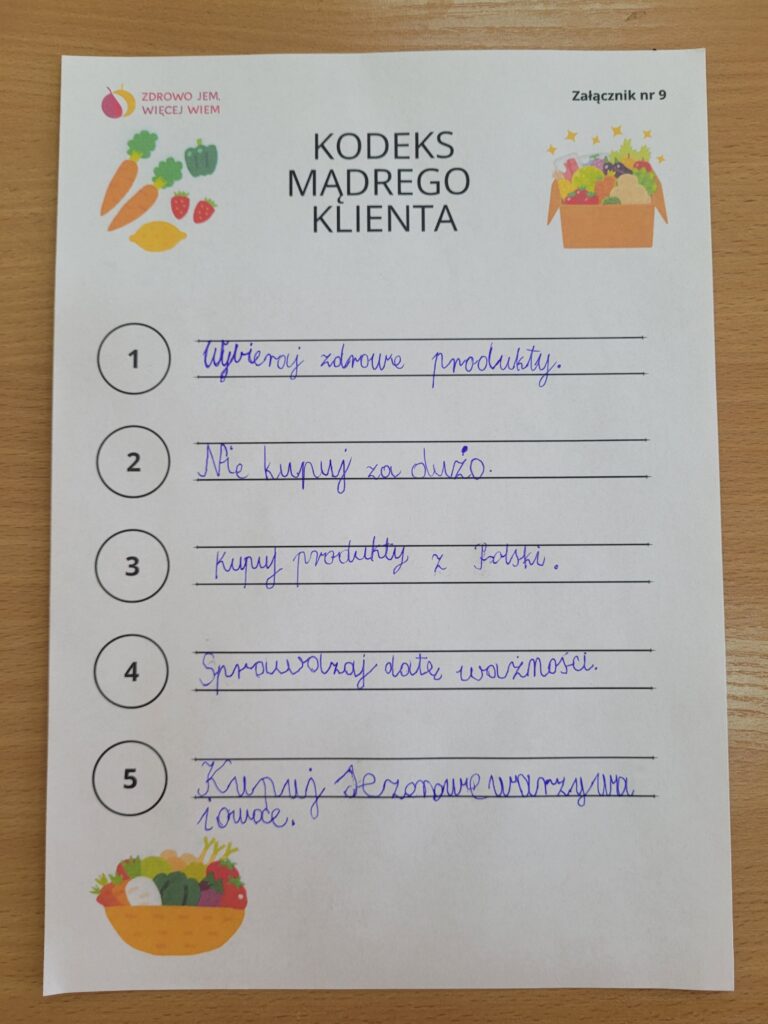 ZDROWO JEM,
WIĘCEJ WIEM
Załącznik nr 9
KODEKS
MĄDREGO
KLIENTA
1
Wybieraj zdrowe produkty.
2
Nie kupuj za dużo.
3
Kupuj produkty z Polski.
4
Sprawdzaj datę ważności.
5
Kupuj sezonowe warzywa
i owoce.